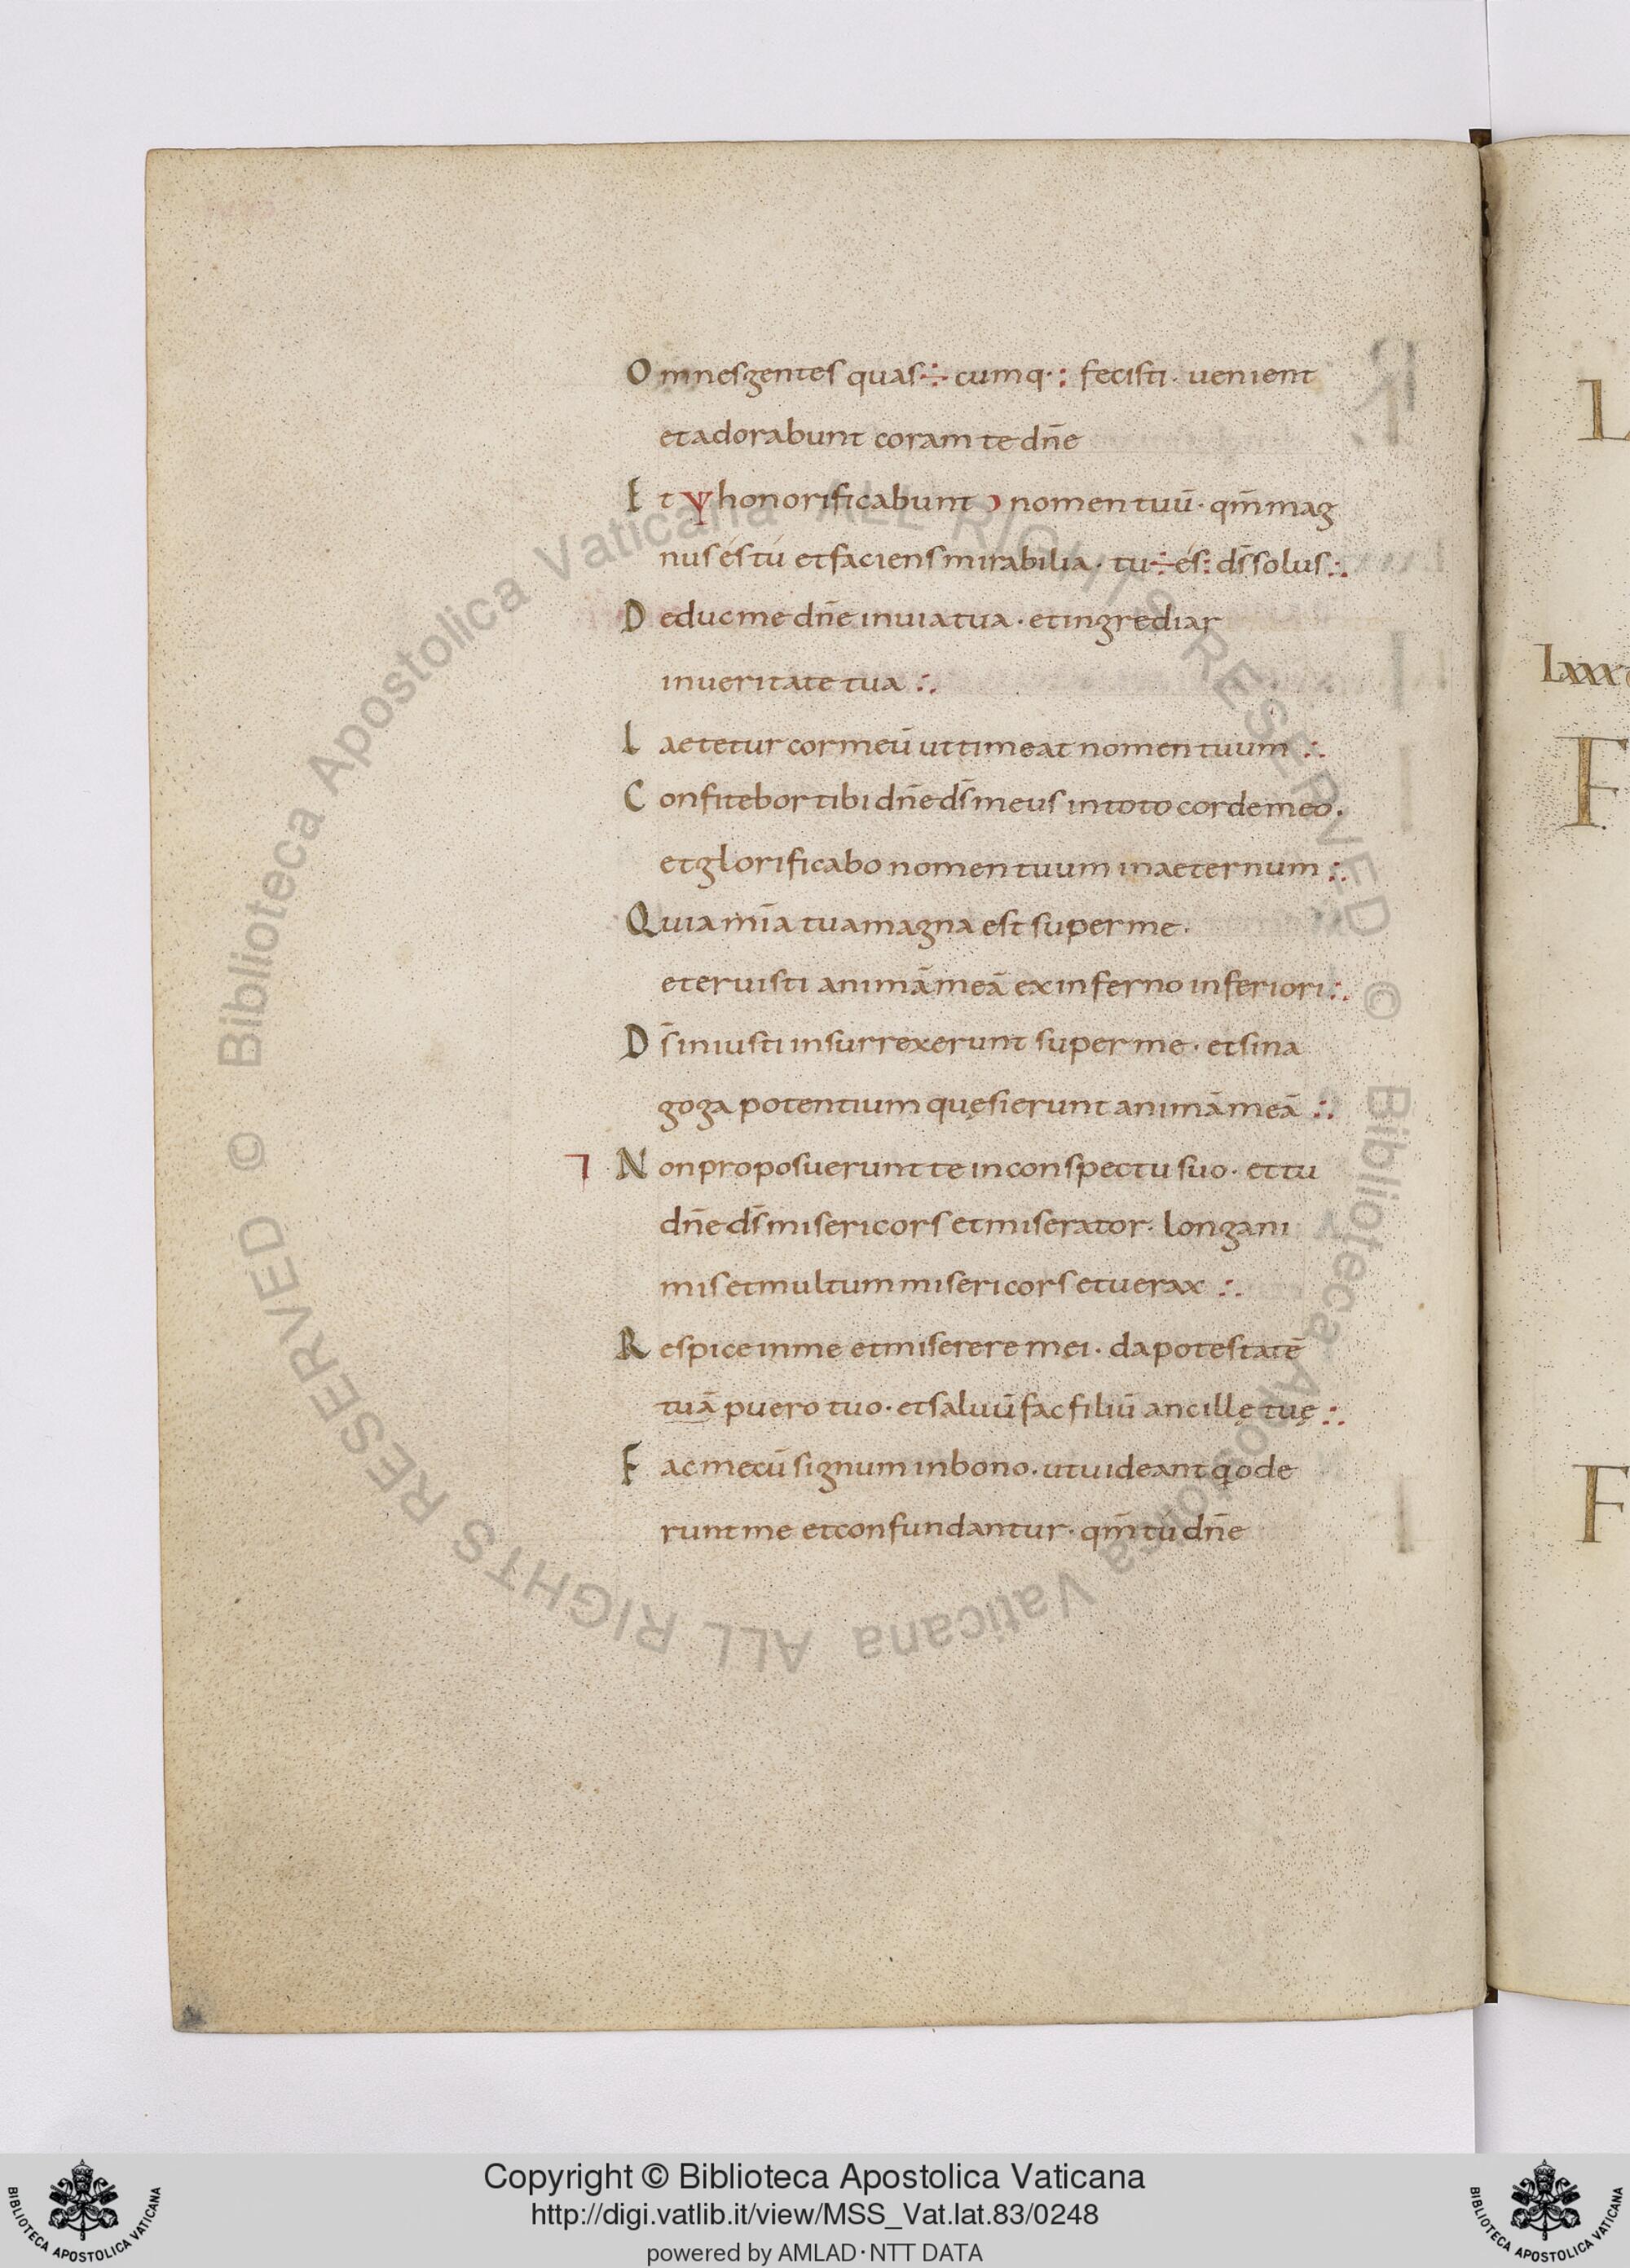 Omnes gentes quas ÷ cumq· : fecisti · uenient
et adorabunt coram te dn̄e
Et ỿ honorificabunt ɔ nomen tuū · qm̄ mag
nus és tú et faciens mirabilia · tu ÷ és : ds̄ solus :.
Deduc me dn̄e in uia tua · et ingrediar
in ueritate tua :.
Laetetur cor meū ut timeat nomen tuum :.
Confitebor tibi dn̄e ds̄ meus in toto corde meo ·
et glorificabo nomen tuum in aeternum :.
Quia mīa tua magna est super me ·
et eruisti animā meā ex inferno inferiori :.
Ds̄ iniusti insurrexerunt super me · et sina
goga potentium quęsierunt animā meā :.
Non proposuerunt te in conspectu suo · et tu
dn̄e ds̄ misericors et miserator · longani
mis et multum misericors et uerax :.
Respice in me et miserere mei · da potestatē
tuā puero tuo · et saluū fac filiū ancillę tuę :.
Fac mecū signum in bono · ut uideant q ode
runt me et confundantur · qm̄ tu dn̄e
L
Lxxx
F
F
© Biblioteca Apostolica Vaticana ALL RIGHTS RESERVED
© Biblioteca Apostolica Vaticana ALL RIGHTS RESERVED
Copyright © Biblioteca Apostolica Vaticana
http://digi.vatlib.it/view/MSS_Vat.lat.83/0248
powered by AMLAD·NTT DATA
BIBLIOTECA APOSTOLICA VATICANA
BIBLIOTECA APOSTOLICA VATICANA